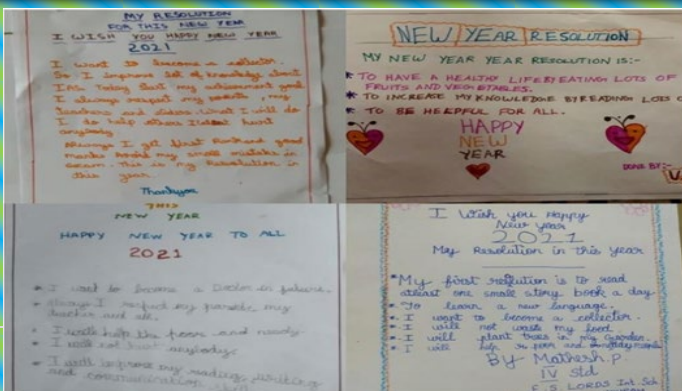 MY RESOLUTION
FOR THIS NEW YEAR
I WISH YOU HAPPY NEW YEAR
2021
I want to become a collector.
So I improve lot of knowledge about
IAS. Today that my achievement goal
I always respect my parents, my
teachers and elders. What I will do
I do help others I don't hurt
anybody.
Always I get first Rank and good
marks Avoid my small mistake in
exam. This is my Resolution in
this year.
Thankyou
NEW YEAR RESOLUTION
MY NEW YEAR YEAR RESOLUTION IS:-
* TO HAVE A HEALTHY LIFE BY EATING LOTS OF
FRUITS AND VEGETABLES.
* TO INCREASE MY KNOWLEDGE BY READING LOTS O
* TO BE HELPFUL FOR ALL.
HAPPY
NEW
YEAR
DONE BY:-
THIS
NEW YEAR
HAPPY NEW YEAR TO ALL
2021
I want to become a Doctor in future.
Always I respect my parents, my
teacher and all.
I will help the poor and needy.
I will not hurt anybody.
I will improve my reading, writing
and communication skill
I Wish you Happy
New year
2021
My Resolution in this year
* My first resolution is to read
atleast one small story book a day
To learn a new language.
I want to become a collector.
I will not waste my food.
I will plant trees in my garden.
I will help poor and people
By Mathesh.P
IV Std
LORDS Int. Sch